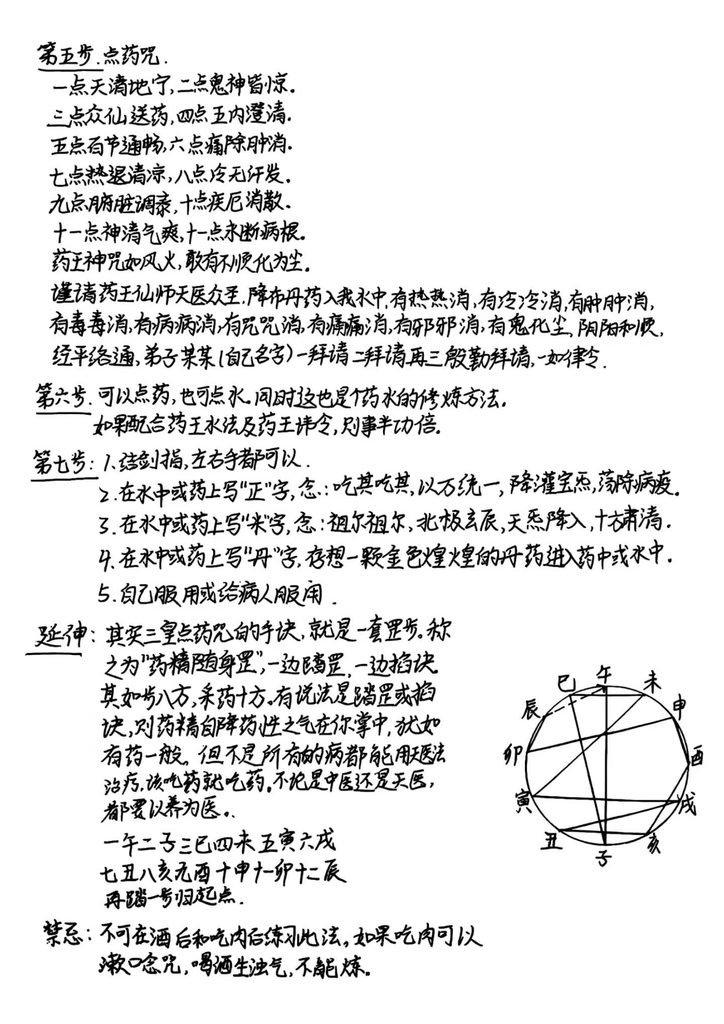 第五步.点药咒.
一点天清地宁,二点鬼神皆惊.
三点众仙送药,四点五内澄清.
五点百节通畅,六点痛除肿消.
七点热退清凉,八点冷无汗发.
九点腑脏调泰,十点疾厄消散.
十一点神清气爽,十一点永断病根.
药王神咒如风火,敢有不顺化为尘.
谨请药王仙师天医众圣,降布丹药入我水中,有热热消,有冷冷消,有肿肿消,
有毒毒消,有病病消,有咒咒消,有痛痛消,有邪邪消,有鬼化尘,阴阳和顺,
经平络通,弟子某某(自己名字)一拜请二拜请再三殷勤拜请,一如律令.
第六步.可以点药,也可点水.同时这也是个药水的修炼方法.
如果配合药王水法及药王讳令,则事半功倍.
第七步:1.结剑指,左右手都可以.
2.在水中或药上写"正"字,念:吃其吃其,以万统一,降灌宝炁,荡除病疫.
3.在水中或药上写"米"字,念:祖尔祖尔,北极玄辰,天炁降入,十方肃清.
4.在水中或药上写"丹"字,存想一颗金色煌煌的丹药进入药中或水中.
5.自己服用或给病人服用.
延伸:其实三皇点药咒的手诀,就是一套罡步.称
之为"药精随身罡",一边踏罡,一边掐诀.
其如步八方,采药十方.有说法是踏罡或掐
诀,则药精自降药性之气在你掌中,犹如
有药一般,但不是所有的病都能用天医法
治疗,该吃药就吃药.不论是中医还是天医,
都要以养为医.
一午二子三巳四未五寅六戌
七丑八亥九酉十申十一卯十二辰
再踏一步归起点.
午
巳
未
辰
申
卯
酉
寅
戌
丑
亥
子
禁忌:不可在酒后和吃肉后练习此法,如果吃肉可以
漱口念咒,喝酒生浊气,不能炼.